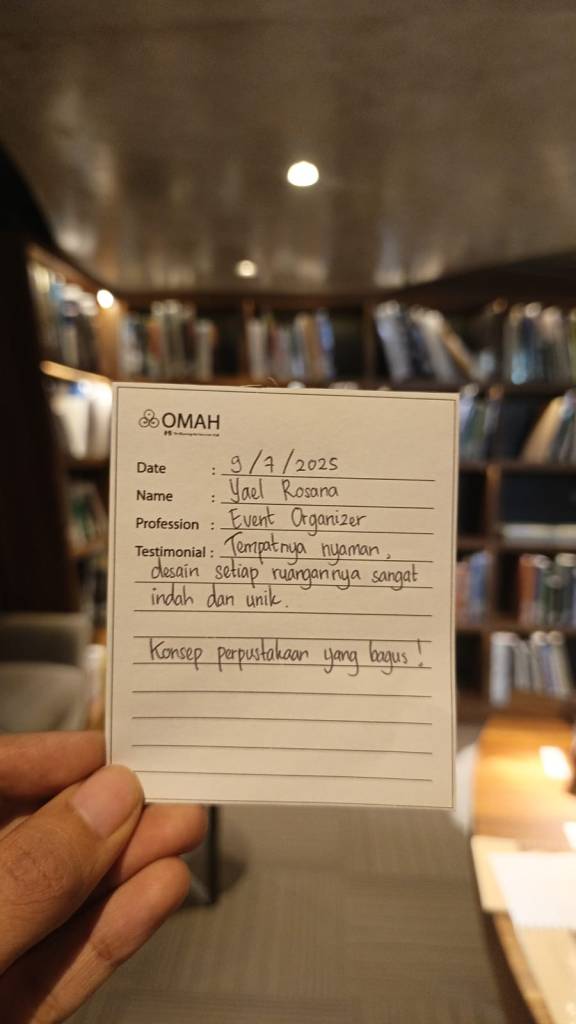 OMAH
Date : 9/7/2025
Name : Yael Rosana
Profession : Event Organizer
Testimonial : Tempatnya nyaman,
desain setiap ruangannya sangat
indah dan unik.
Konsep perpustakaan yang bagus!